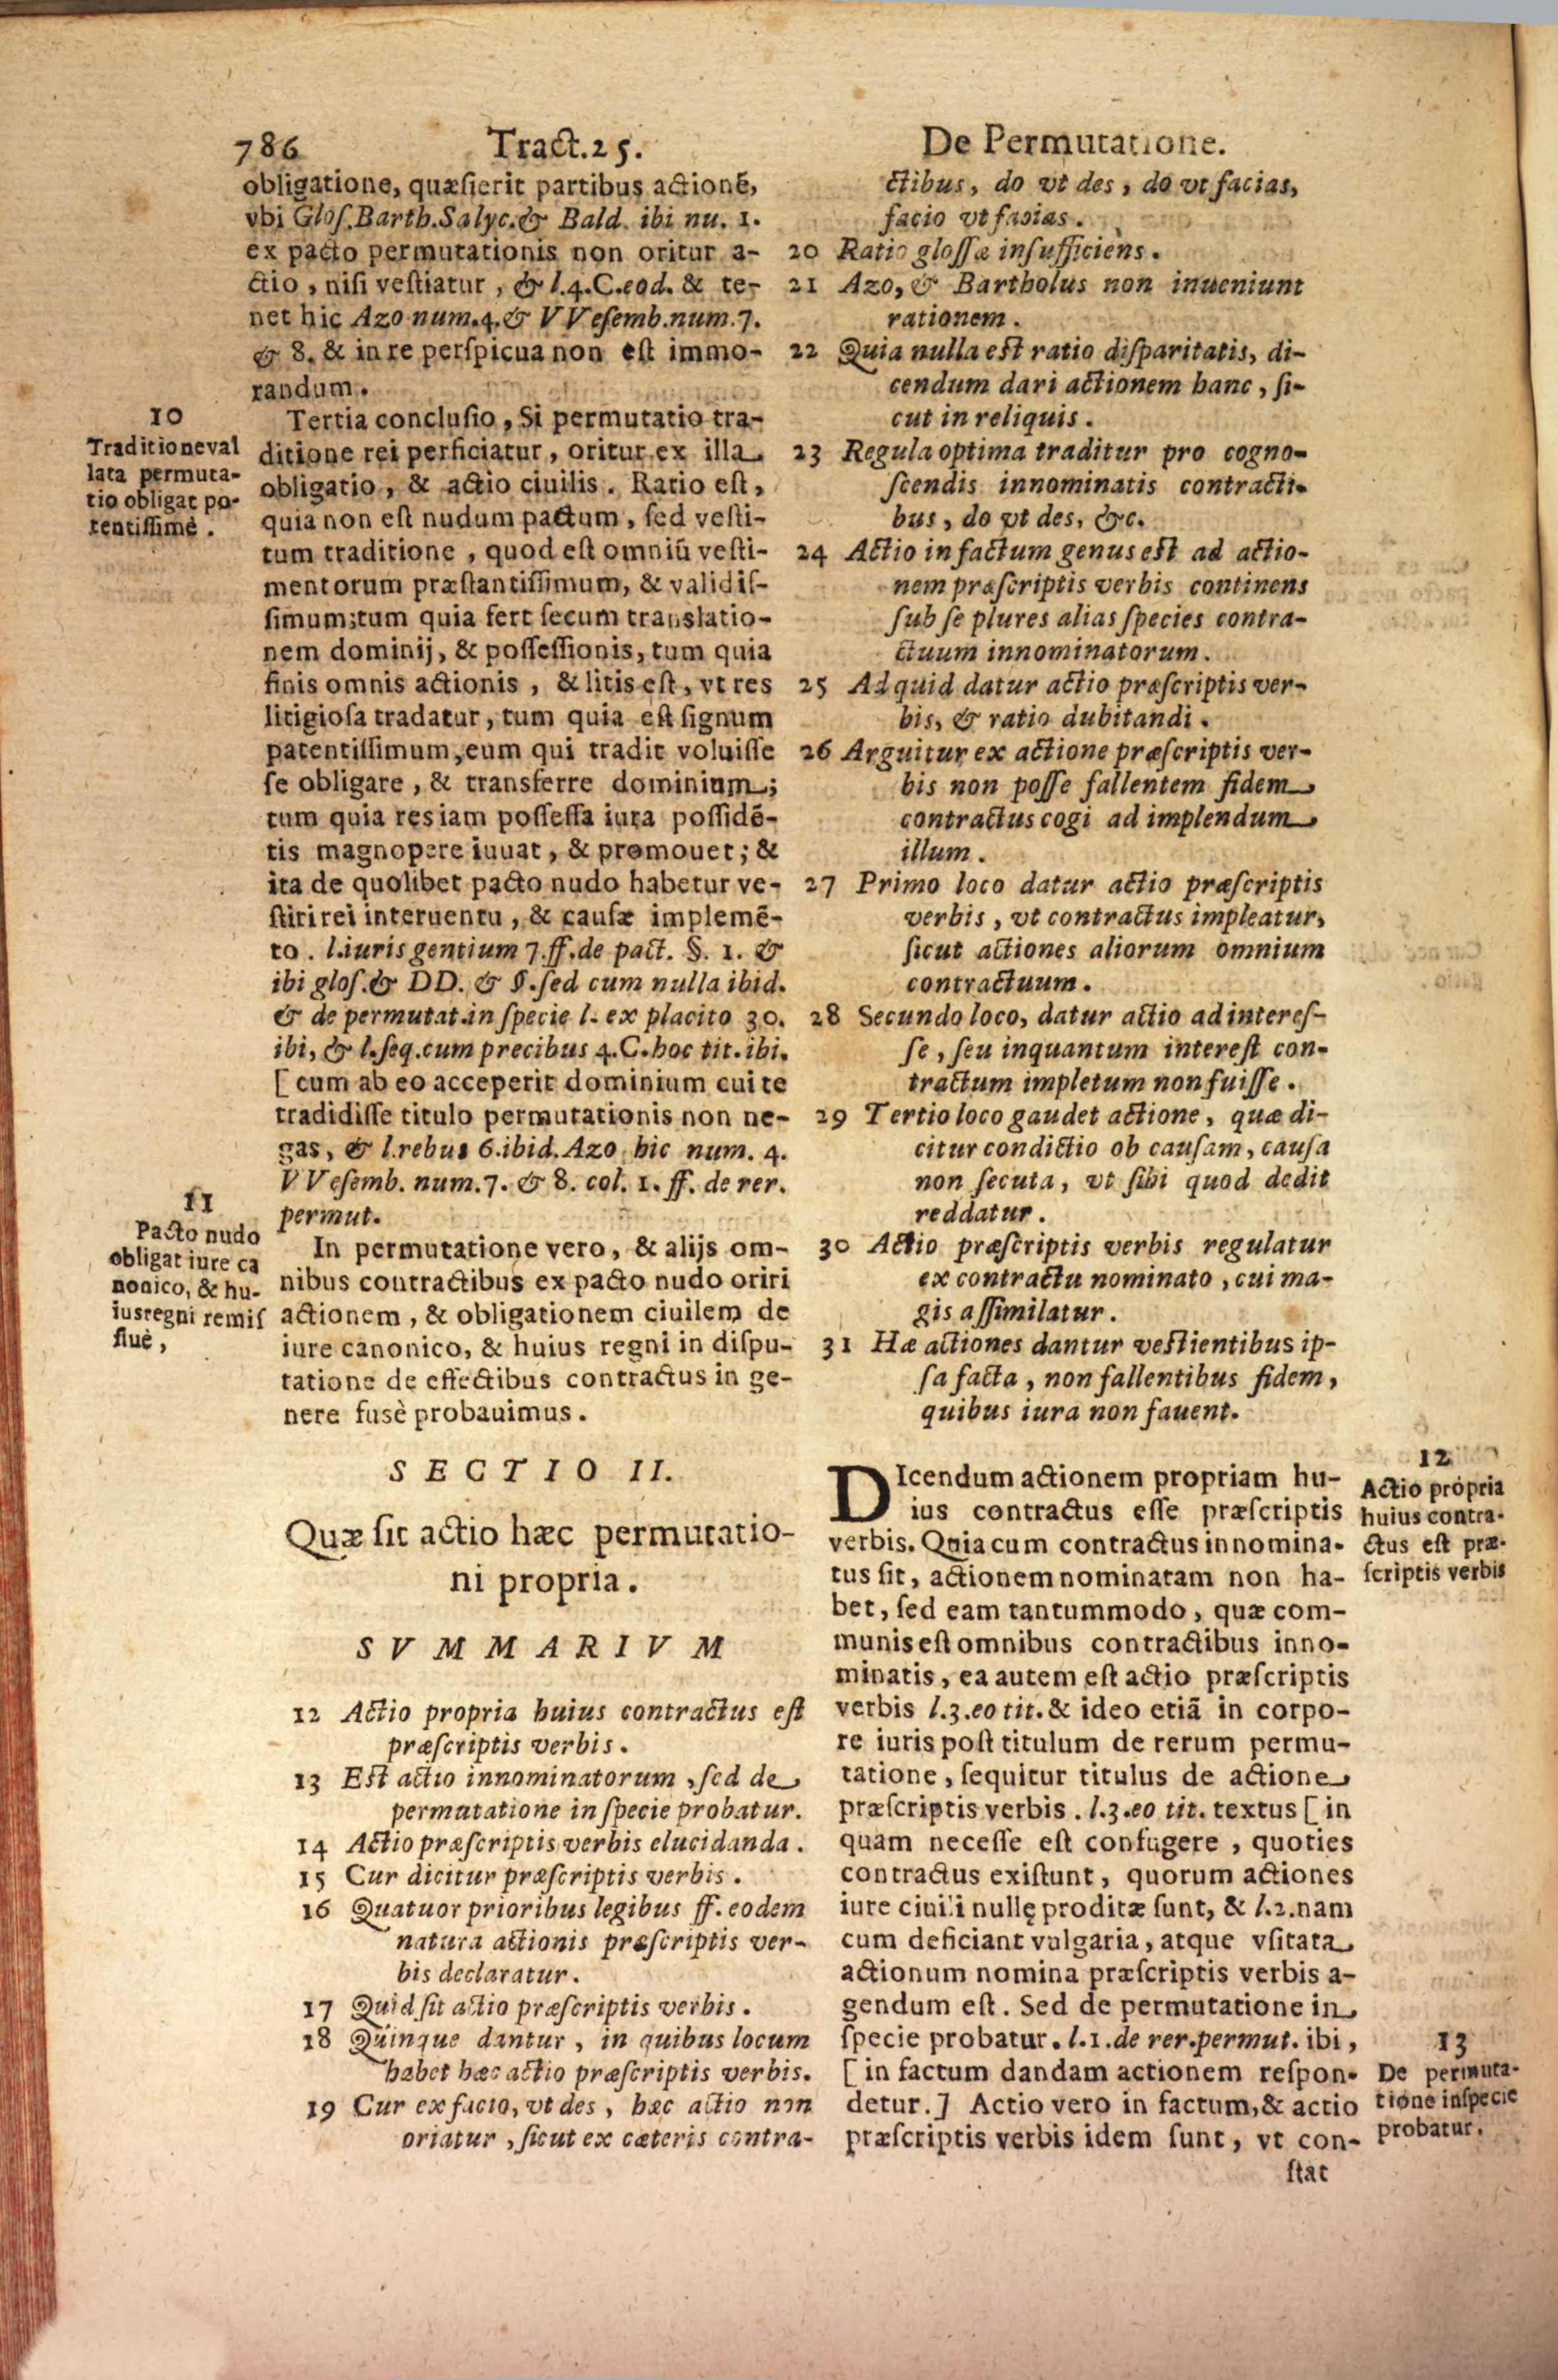 786 Tract.25. De Permutatione.
obligatione, quæſierit partibus actionē,
vbi Gloſ.Barth.Salyc.& Bald. ibi nu. 1.
ex pacto permutationis non oritur a-
ctio, niſi veſtiatur, & l.4.C.eod. & te-
net hic Azo num.4.& VVeſemb.num.7.
& 8. & in re perſpicua non eſt immo-
randum.
10
Traditioneval
lata permuta-
tio obligat po-
tentiſſimè.
Tertia concluſio, Si permutatio tra-
ditione rei perficiatur, oritur ex illa
obligatio, & actio ciuilis. Ratio eſt,
quia non eſt nudum pactum, ſed veſti-
tum traditione, quod eſt omniū veſti-
mentorum præſtantiſſimum, & validiſ-
ſimum;tum quia fert ſecum translatio-
nem dominij, & poſſeſſionis, tum quia
finis omnis actionis, & litis eſt, vt res
litigioſa tradatur, tum quia eſt ſignum
patentiſſimum,eum qui tradit voluiſſe
ſe obligare, & transferre dominium;
tum quia res iam poſſeſſa iura poſſidē-
tis magnopere iuuat, & promouet; &
ita de quolibet pacto nudo habetur ve-
ſtiri rei interuentu, & cauſæ implemē-
to. l.iuris gentium 7.ff.de pact. §. 1. &
ibi gloſ.& DD. & §.ſed cum nulla ibid.
& de permutat.in ſpecie l. ex placito 30.
ibi, & l.ſeq.cum precibus 4.C.hoc tit.ibi.
[cum ab eo acceperit dominium cui te
tradidiſſe titulo permutationis non ne-
gas, & l.rebus 6.ibid.Azo hic num. 4.
VVeſemb. num.7. & 8. col. 1. ff. de rer.
permut.
11
Pacto nudo
obligat iure ca
nonico, & hu-
iusregni remiſ
ſiuè,
In permutatione vero, & alijs om-
nibus contractibus ex pacto nudo oriri
actionem, & obligationem ciuilem de
iure canonico, & huius regni in diſpu-
tatione de effectibus contractus in ge-
nere fusè probauimus.
SECTIO II.
Quæ ſit actio hæc permutatio-
ni propria.
SVMMARIVM
12 Actio propria huius contractus eſt
præſcriptis verbis.
13 Eſt actio innominatorum, ſed de
permutatione in ſpecie probatur.
14 Actio præſcriptis verbis elucidanda.
15 Cur dicitur præſcriptis verbis.
16 Quatuor prioribus legibus ff. eodem
natura actionis præſcriptis ver-
bis declaratur.
17 Quid ſit actio præſcriptis verbis.
18 Quinque dantur, in quibus locum
habet hæc actio præſcriptis verbis.
19 Cur ex facio, vt des, hæc actio non
oriatur, ſicut ex cæteris contra-
ctibus, do vt des, do vt facias,
facio vt facias.
20 Ratio gloſſæ inſufficiens.
21 Azo, & Bartholus non inueniunt
rationem.
22 Quia nulla eſt ratio diſparitatis, di-
cendum dari actionem hanc, ſi-
cut in reliquis.
23 Regula optima traditur pro cogno-
ſcendis innominatis contracti-
bus, do vt des, &c.
24 Actio in factum genus eſt ad actio-
nem præſcriptis verbis continens
ſub ſe plures alias ſpecies contra-
ctuum innominatorum.
25 Ad quid datur actio præſcriptis ver-
bis, & ratio dubitandi.
26 Arguitur ex actione præſcriptis ver-
bis non poſſe fallentem fidem
contractus cogi ad implendum
illum.
27 Primo loco datur actio præſcriptis
verbis, vt contractus impleatur,
ſicut actiones aliorum omnium
contractuum.
28 Secundo loco, datur actio ad intereſ-
ſe, ſeu inquantum intereſt con-
tractum impletum non fuiſſe.
29 Tertio loco gaudet actione, quæ di-
citur condictio ob cauſam, cauſa
non ſecuta, vt ſibi quod dedit
reddatur.
30 Actio præſcriptis verbis regulatur
ex contractu nominato, cui ma-
gis aſſimilatur.
31 Hæ actiones dantur veſtientibus ip-
ſa facta, non fallentibus fidem,
quibus iura non fauent.
12
Actio propria
huius contra-
ctus eſt præ-
ſcriptis verbis
DIcendum actionem propriam hu-
ius contractus eſſe præſcriptis
verbis. Quia cum contractus innomina-
tus ſit, actionem nominatam non ha-
bet, ſed eam tantummodo, quæ com-
munis eſt omnibus contractibus inno-
minatis, ea autem eſt actio præſcriptis
verbis l.3.eo tit.& ideo etiā in corpo-
re iuris poſt titulum de rerum permu-
tatione, ſequitur titulus de actione
præſcriptis verbis. l.3.eo tit. textus [in
quam neceſſe eſt confugere, quoties
contractus exiſtunt, quorum actiones
iure ciuili nullę proditæ ſunt, & l.2.nam
cum deficiant vulgaria, atque vſitata
actionum nomina præſcriptis verbis a-
gendum eſt. Sed de permutatione in
ſpecie probatur. l.1.de rer.permut. ibi,
[in factum dandam actionem reſpon-
detur.] Actio vero in factum,& actio
præſcriptis verbis idem ſunt, vt con-
13
De permuta-
tione inſpecie
probatur.
ſtat